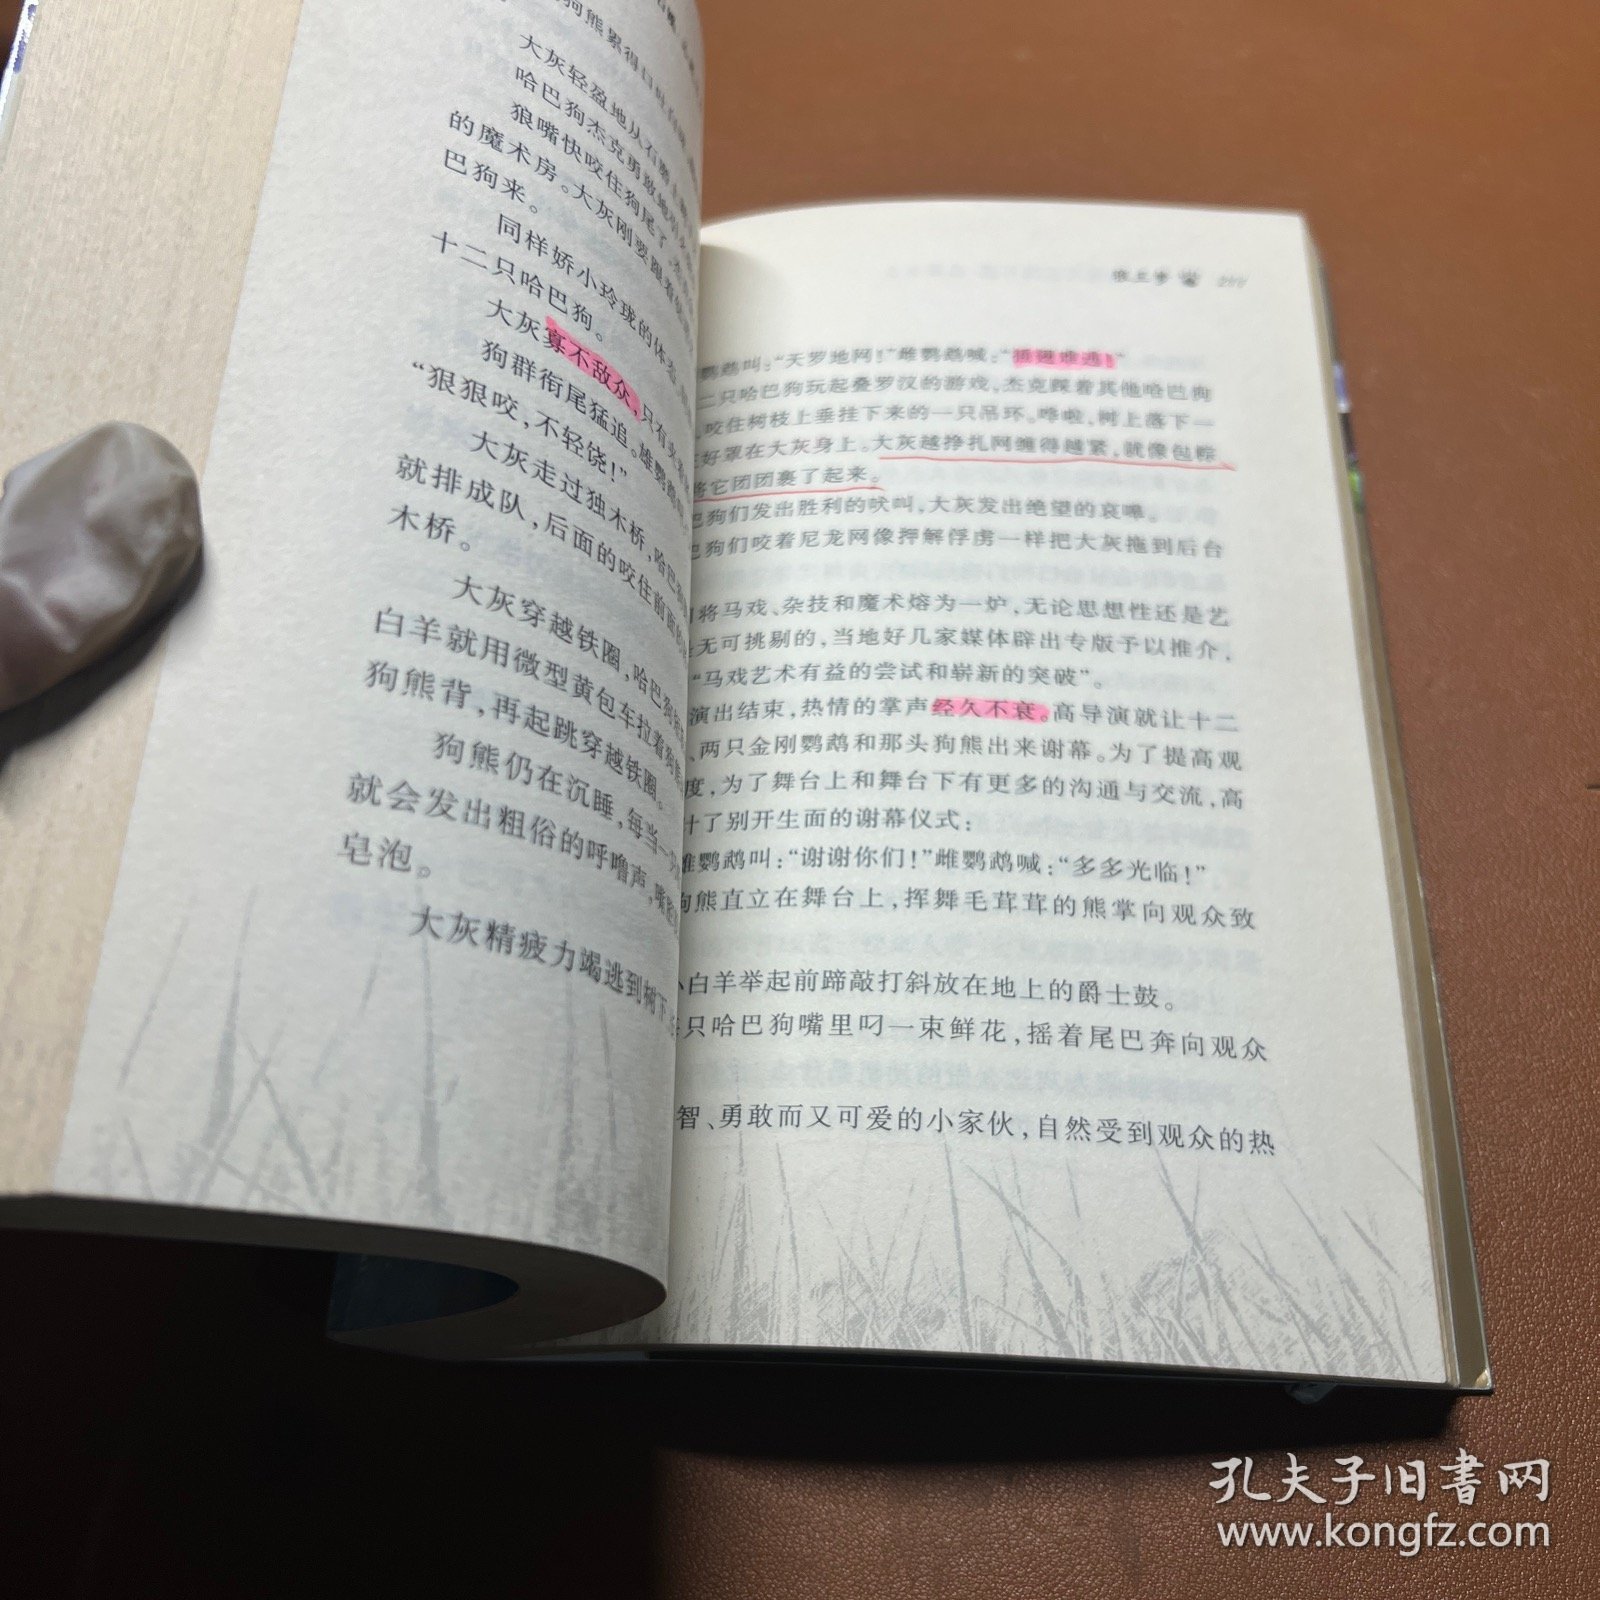 狗熊累得口吐白沫
大灰轻盈地从石磨上
哈巴狗杰克勇敢地
狼嘴快咬住狗尾了
的魔术房。大灰刚要跟着
巴狗来。
同样娇小玲珑的体态
十二只哈巴狗。
大灰寡不敌众,只有夹着
狗群衔尾猛追。雄鹦鹉
“狠狠咬,不轻饶!”
大灰走过独木桥,哈巴狗
就排成队,后面的咬住前面
木桥。
大灰穿越铁圈,哈巴狗
白羊就用微型黄包车拉着狗熊
狗熊背,再起跳穿越铁圈。
狗熊仍在沉睡,每当一
就会发出粗俗的呼噜声,嘴
皂泡。
大灰精疲力竭逃到树下
鹦鹉叫:“天罗地网!”雌鹦鹉喊:“插翅难逃!”
二只哈巴狗玩起叠罗汉的游戏,杰克踩着其他哈巴狗
咬住树枝上垂挂下来的一只吊环。哗啦,树上落下一
好罩在大灰身上。大灰越挣扎网缠得越紧,就像包粽
将它团团裹了起来。
巴狗们发出胜利的吠叫,大灰发出绝望的哀嗥。
巴狗们咬着尼龙网像押解俘虏一样把大灰拖到后台
将马戏、杂技和魔术熔为一炉,无论思想性还是艺
无可挑剔的,当地好几家媒体辟出专版予以推介,
“马戏艺术有益的尝试和崭新的突破”。
演出结束,热情的掌声经久不衰。高导演就让十二
、两只金刚鹦鹉和那头狗熊出来谢幕。为了提高观
度,为了舞台上和舞台下有更多的沟通与交流,高
计了别开生面的谢幕仪式:
雄鹦鹉叫:“谢谢你们!”雌鹦鹉喊:“多多光临!”
狗熊直立在舞台上,挥舞毛茸茸的熊掌向观众致
小白羊举起前蹄敲打斜放在地上的爵士鼓。
只哈巴狗嘴里叼一束鲜花,摇着尾巴奔向观众
智、勇敢而又可爱的小家伙,自然受到观众的热
孔夫子旧书网
www.kongfz.com